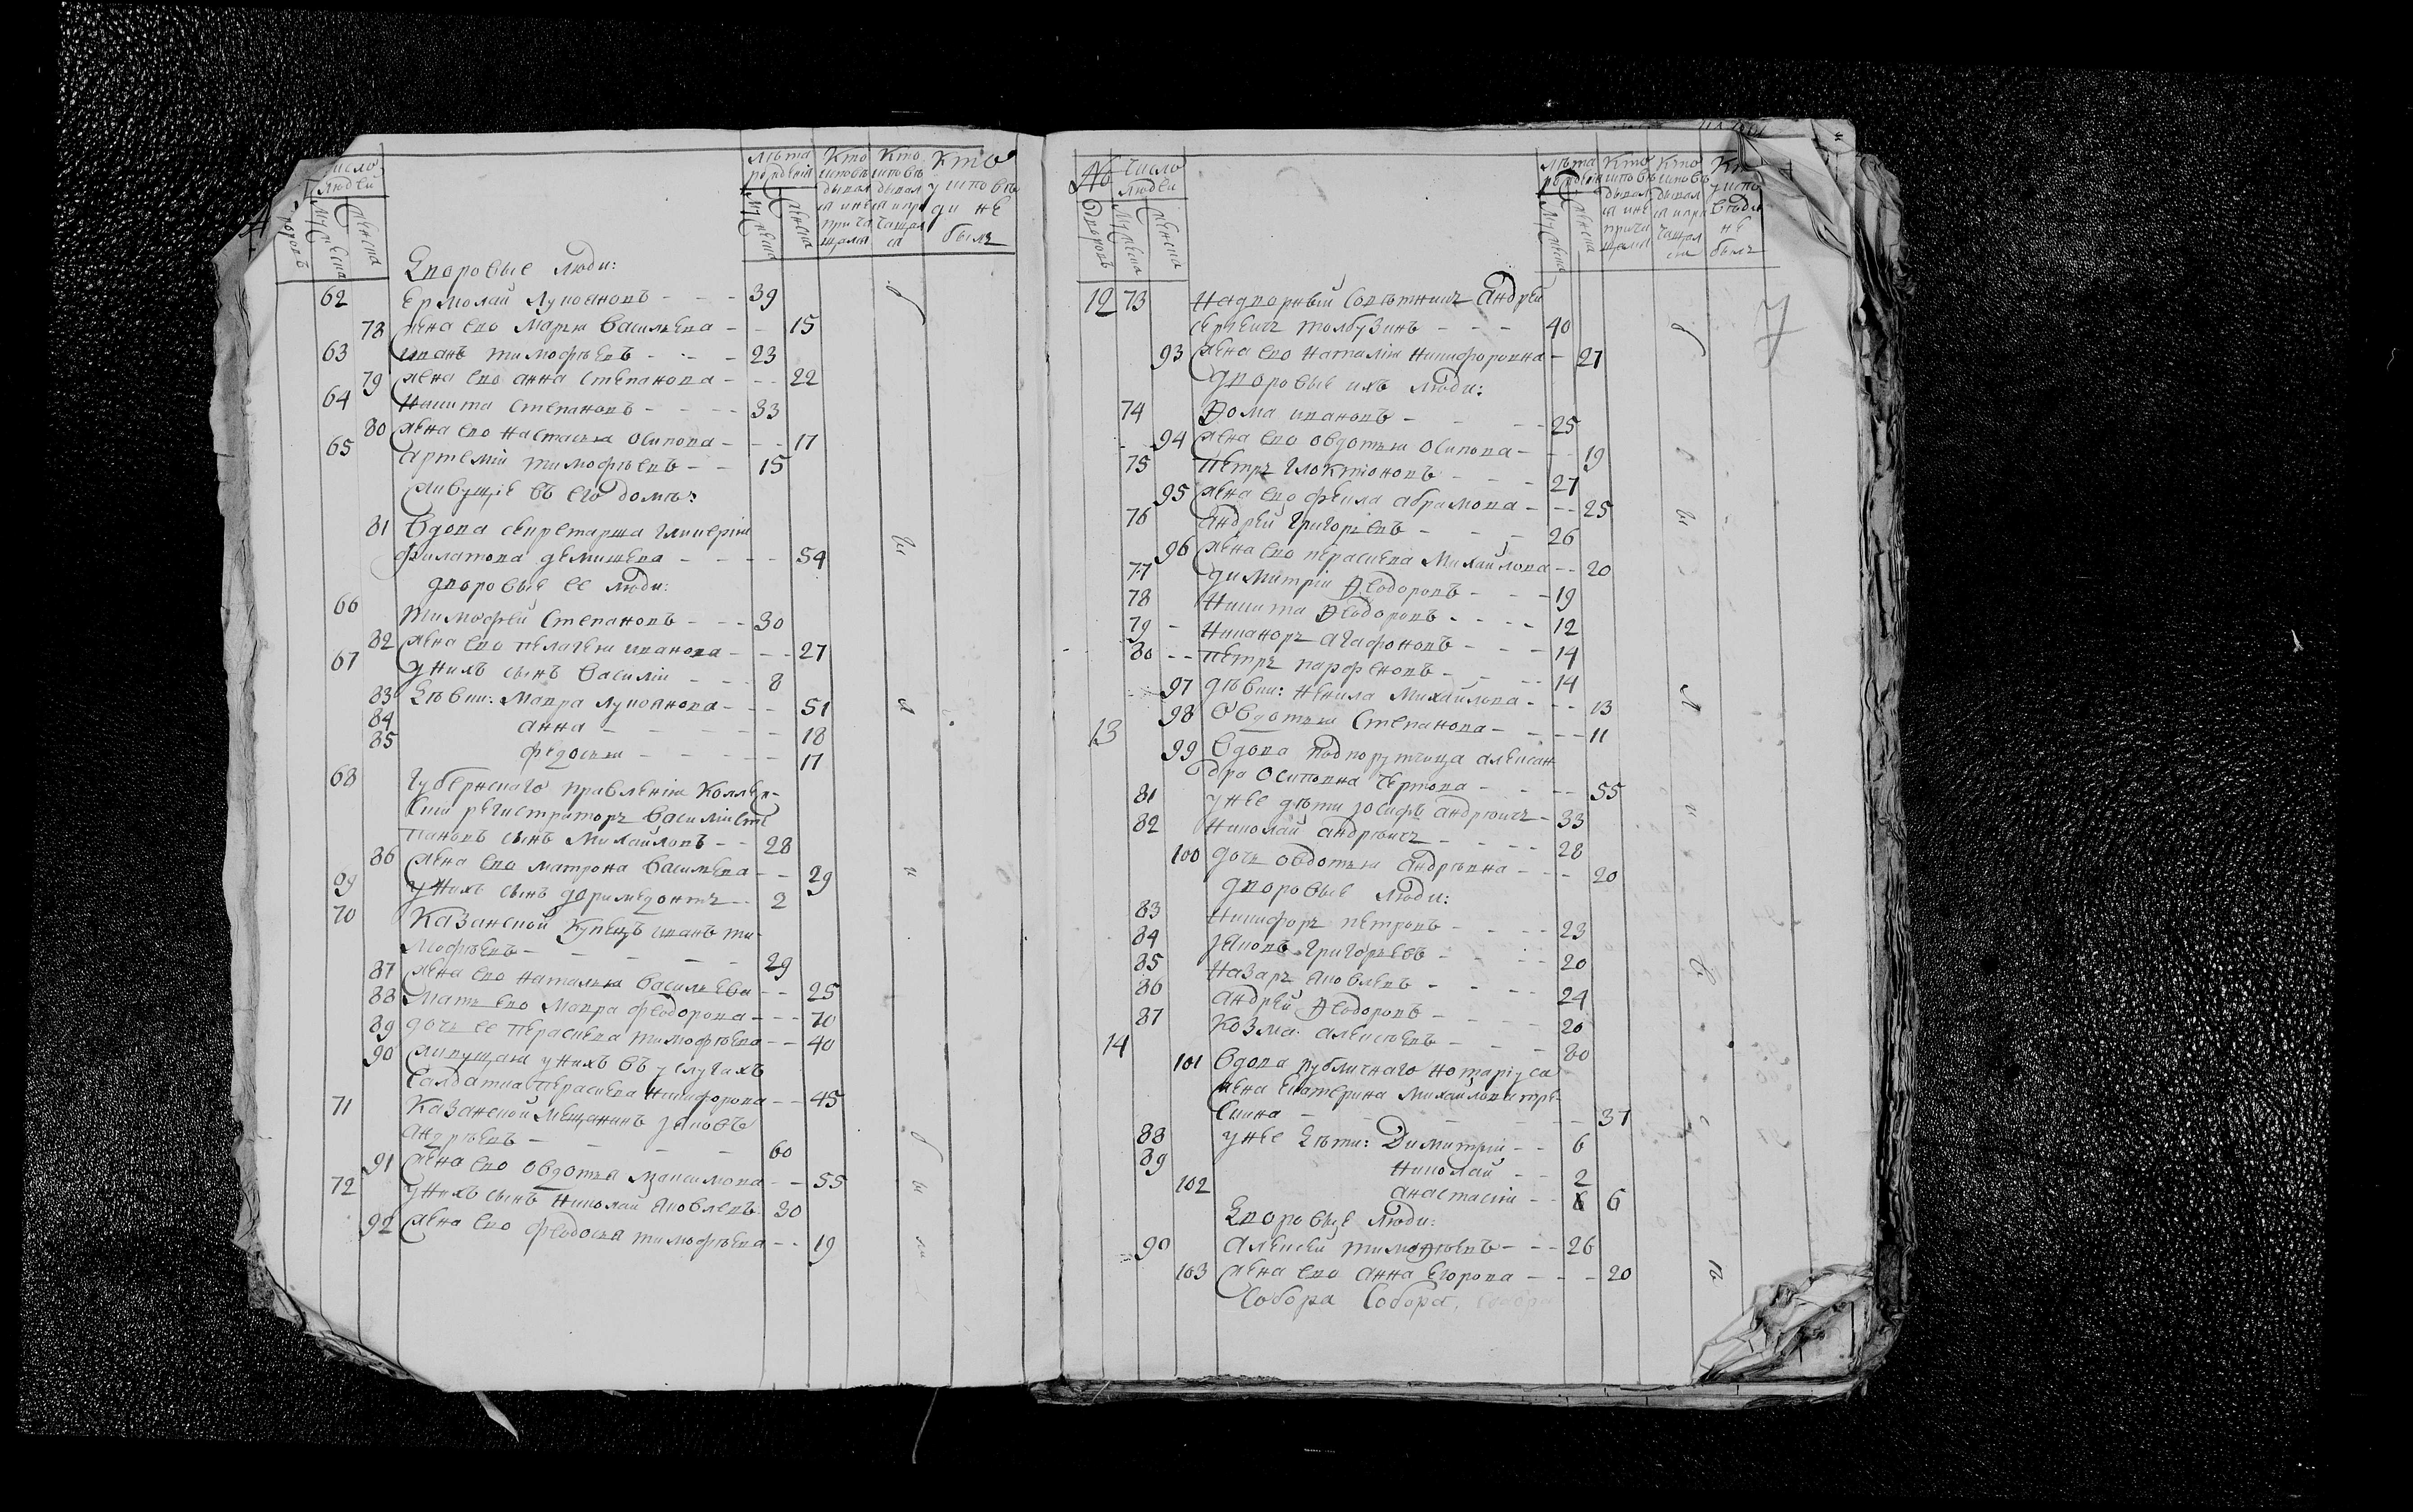 Число людей
Дворовъ
Мужеска
Женска
лѣта рожденія
Мужеска
Женска
Кто исповѣдывался и не причащался
Кто исповѣдывался и причащался
Кто у исповѣди не былъ
Дворовые люди:
62 Ермолай Лукояновъ - - - 39
78 жена ево Марья Васильева - - 15
63 Иванъ Тимофѣевъ - - - 23
79 жена ево Анна Степанова - - - 22
64 Никита Степановъ - - - - 33
80 жена ево Настасья Осипова - - - 17
65 Артемій Тимофѣевъ - - 15
живущіе въ его домѣ:
81 Вдова секретарша Гликерія
Филатова Демишева - - - - 54
дворовые ее люди:
66 Тимофей Степановъ - - - 30
82 жена ево Пелагея Иванова - - - 27
67 у нихъ сынъ Василій - - - 8
83 Дѣвки: Мавра Лукоянова - - - 51
84 Анна - - - - - - 18
85 Федосья - - - - - 17
68 Губернскаго правленія Коллеж-
скій регистраторъ Василій Сте
пановъ сынъ Михайловъ - - 28
86 жена ево Матрона Васильева - - 29
69 у нихъ сынъ Доримедонтъ - - 2
70 Казанской Купецъ Иванъ Ти-
мофѣевъ - - - - - 29
87 жена ево Наталья Васильева - - 25
88 Мать ево Мавра Феодорова - - - 70
89 дочь ее Параскева Тимофѣева - - 40
90 живущая у нихъ въ услугахъ
Салдатка Параскева Никифорова - - 45
71 Казанской Мещанинъ Іаковъ
Андрѣевъ - - - - 60
91 жена ево Овдотья Максимова - - 55
72 у нихъ сынъ Николай Яковлевъ 30
92 жена ево Феодосья Тимофѣева - - 19
№
Число людей
Дворовъ
Мужеска
Женска
лѣта рожденія
Мужеска
Женска
Кто исповѣдывался и не причащался
Кто исповѣдывался и причащался
7
12 73 Надворный Совѣтникъ Андрей
Сергеичъ Толбузинъ - - - 40
93 жена ево Наталія Никифоровна - 27
дворовые ихъ люди:
74 Ѳома Ивановъ - - - - 25
94 жена ево Овдотья Осипова - - - 19
75 Петръ Галактіоновъ - - - 27
95 жена ево Фекла Абрамова - - - 25
76 Андрей Григорьевъ - - - 26
96 жена ево Параскева Михайлова - - 20
77 Димитрій Ѳеодоровъ - - - 19
78 Никита Ѳеодоровъ - - - - 12
79 - Никаноръ Агафоновъ - - - 14
80 - - Петръ Парфеновъ - - - - 14
97 дѣвки: Ненила Михайлова - - - 13
98 Овдотья Степанова - - - - 11
13 99 Вдова подпорутчица Алексан
дра Осиповна Чертова - - - - 55
81 у нее дѣти Іосифъ Андрѣичъ - 33
82 Николай Андрѣичъ - - - - 28
100 дочь Овдотья Андрѣвна - - - 20
дворовые люди:
83 Никифоръ Петровъ - - - - 23
84 Іаковъ Григорьевъ - - - - 20
85 Назаръ Яковлевъ - - - - 24
86 Андрей Ѳеодоровъ - - - - 20
87 Козма Алексѣевъ - - - 80
14 101 Вдова публичнаго нотаріуса
жена Екатерина Михайлова
- - - - - 37
88 у нее Дѣти: Димитрій - - 6
89 Николай - - 2
102 Анастасія - - 6
Дворовые люди:
90 Алексей Тимоѳѣевъ - - - 26
103 жена ево Анна Егорова - - - 20
Собора Собора, Собора